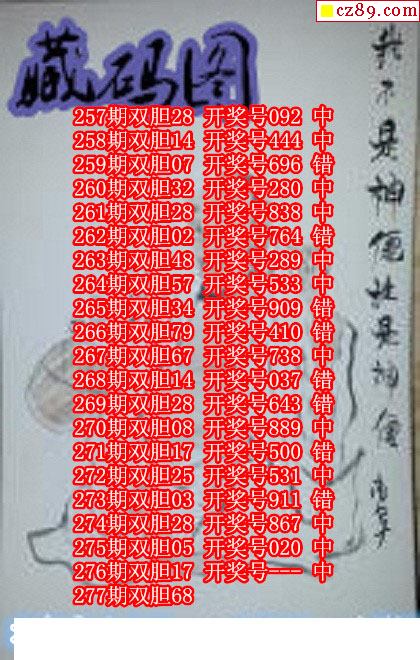 cz89.com
藏码图
257期双胆28 开奖号092 中
258期双胆14 开奖号444 中
259期双胆07 开奖号696 错
260期双胆32 开奖号280 中
261期双胆28 开奖号838 中
262期双胆02 开奖号764 错
263期双胆48 开奖号289 中
264期双胆57 开奖号533 中
265期双胆34 开奖号909 错
266期双胆79 开奖号410 错
267期双胆67 开奖号738 中
268期双胆14 开奖号037 错
269期双胆28 开奖号643 错
270期双胆08 开奖号889 中
271期双胆17 开奖号500 错
272期双胆25 开奖号531 中
273期双胆03 开奖号911 错
274期双胆28 开奖号867 中
275期双胆05 开奖号020 中
276期双胆17 开奖号--- 中
277期双胆68
我不是神仙
是神仙